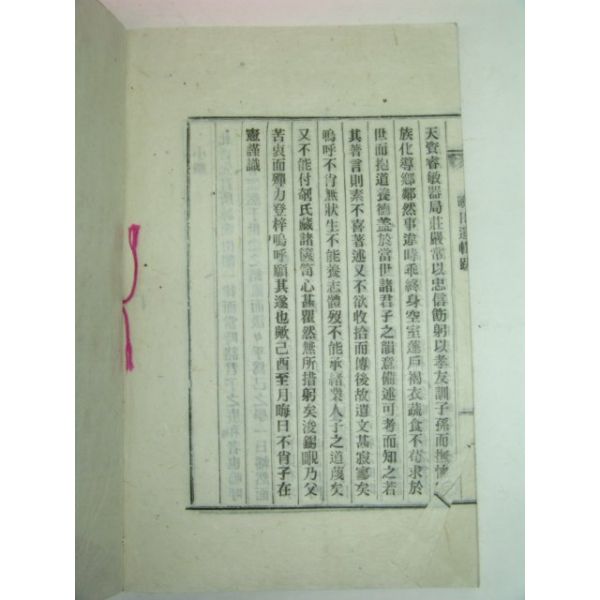 天資睿敏器局莊嚴常以忠信飭躬以孝友訓子孫而撫恤
族化導鄉鄰然事違時乖終身空室蓬戶褐衣蔬食不苟求於
世而抱道養德蓋於當世諸君子之韻意備述可考而知之若
其著言則素不喜著述又不欲收拾而傳後故遺文甚寂寥矣
嗚呼不肖無狀生不能養志體歿不能承緖業人子之道蔑矣
又不能付剞氏藏諸篋笥心甚瞿然無所措躬矣浚錫眖乃父
苦衷而殫力登梓嗚呼願其遂也歟己酉至月晦日不肖子在
憲謹識